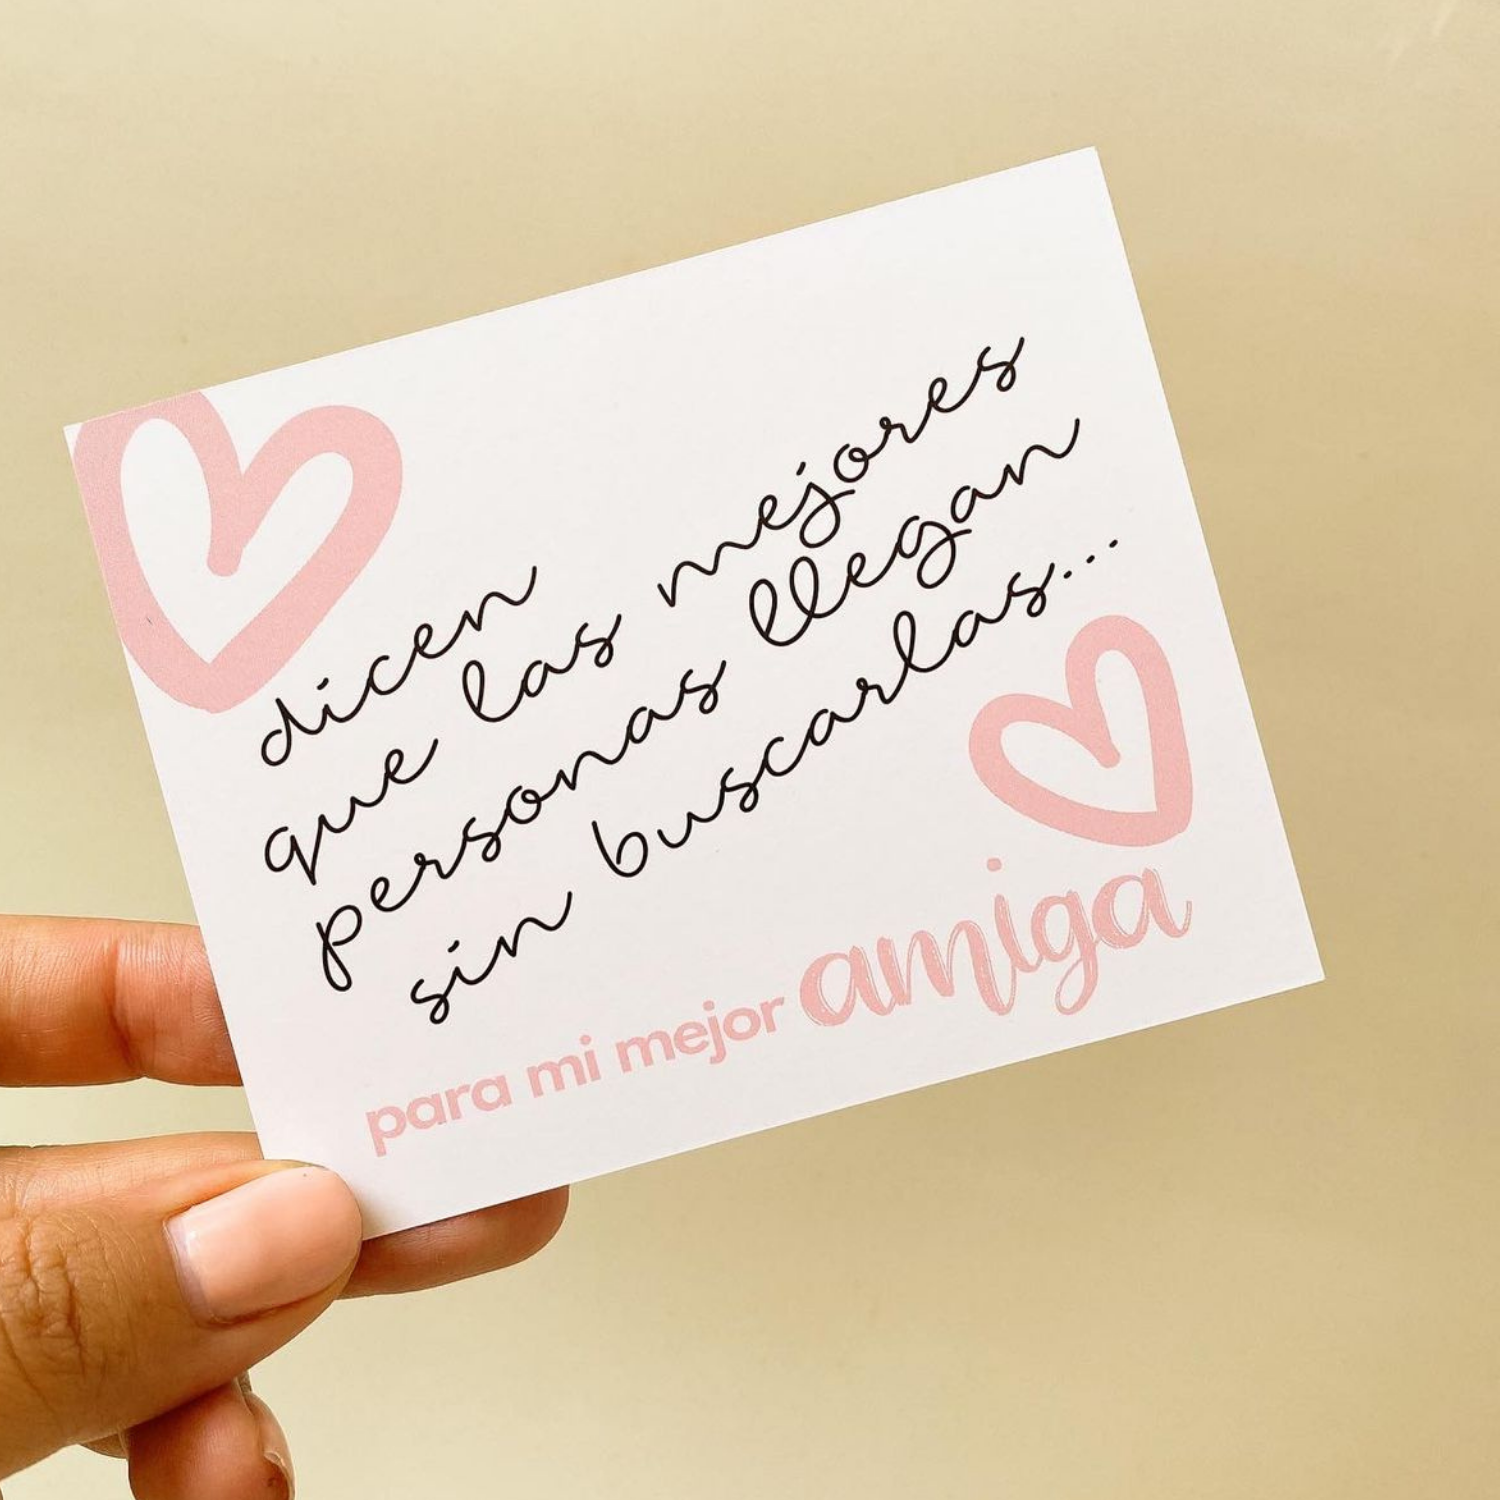 dicen
que las mejores
personas llegan
sin buscarlas...
para mi mejor amiga